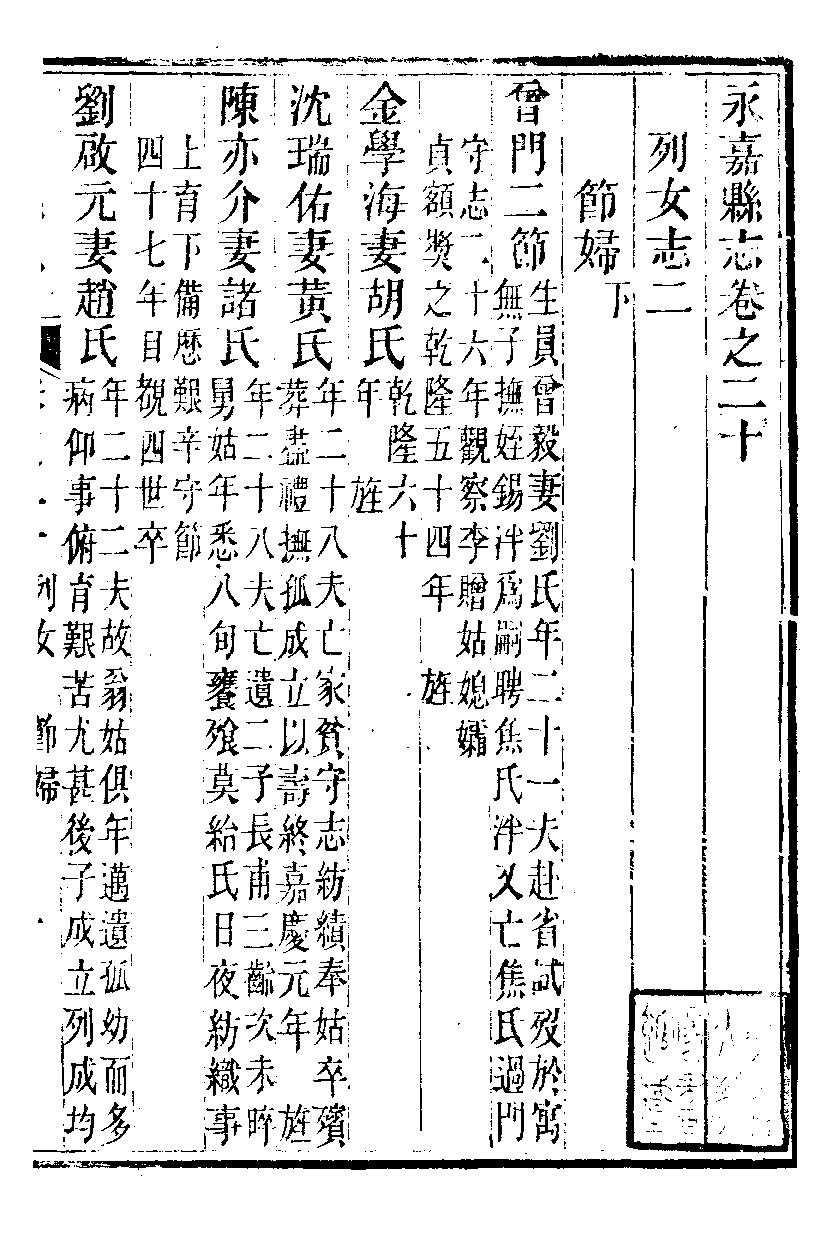 永嘉縣志卷之二十
列女志二
節婦下
曾門二節生員曾毅妻劉氏年二十一夫赴省試歿於寓
無子撫姪錫泮爲嗣聘焦氏泮又亡焦氏過門
守志二十六年觀察李贈姑媳孀
貞額獎之乾隆五十四年 旌
金學海妻胡氏乾隆六十
年 旌
沈瑞佑妻黃氏年二十八夫亡家貧守志紡績奉姑卒殯
葬盡禮撫孤成立以壽終嘉慶元年 旌
陳亦介妻諸氏年二十八夫亡遺二子長甫三齡次未晬
舅姑年悉八旬饔飱莫給氏日夜紡織事
上育下備歷艱辛守節
四十七年目覩四世卒
劉啟元妻趙氏年二十二夫故翁姑俱年邁遺孤幼而多
病仰事俯育艱苦尤甚後子成立列成均
列女 節婦